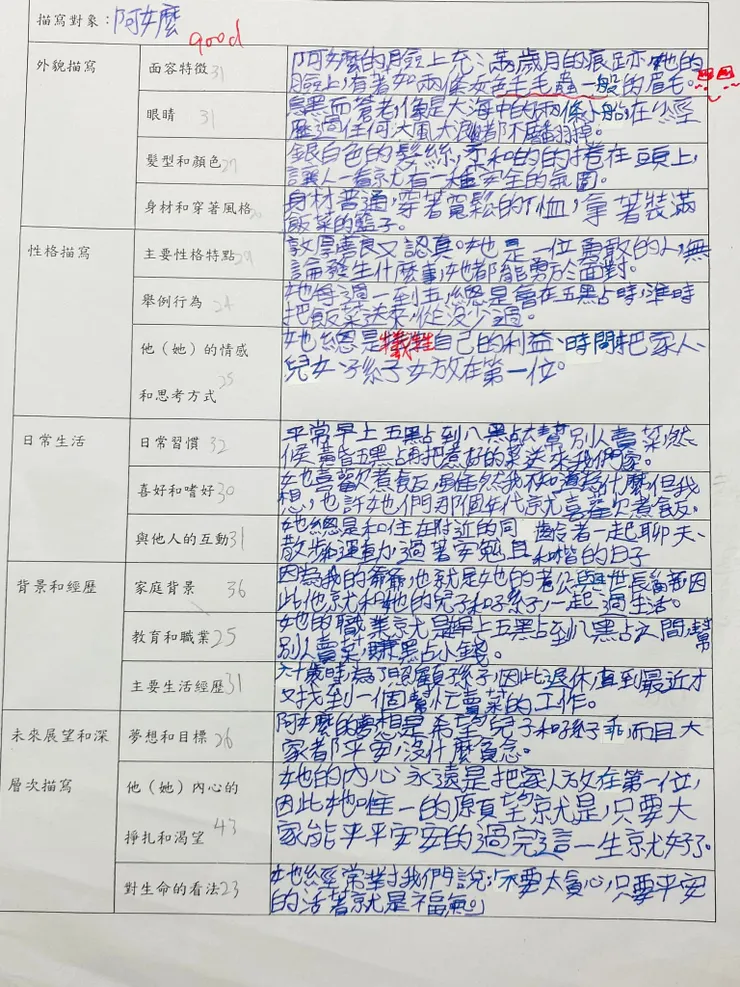 描寫對象：阿嬤
good
外貌描寫
面容特徵31
阿嬤的臉上充滿歲月的痕跡，她的
臉上，有著如兩條灰色毛毛蟲一般的眉毛。
眼睛 31
烏黑而蒼老，像是大海中的兩條小船，在少經
歷過任何大風大浪都不翻掉。
髮型和顏色27
銀白色的髮絲，柔和的的捲在頭上，
讓人一看就有一種安全的氛圍。
身材和穿著風格
身材普通，穿著寬鬆的T恤，拿著裝滿
飯菜的籃子。
性格描寫
主要性格特點29
敦厚善良又認真。她是一位勇敢的人，無
論發生什麼事，她都能勇於面對。
舉例行為 24
她每週一到五，總是會在五點時，準時
把飯菜送來，從沒少過。
他（她）的情感
和思考方式25
她總是犧牲自己的利益、時間把家人、
兒女、孫子女放在第一位。
日常生活
日常習慣 32
平常早上五點到八點去幫別人賣菜，然
候黃昏五點再把煮好的菜送來我們家。
喜好和嗜好30
她喜歡煮飯，雖然我不知道為什麼，但我
想，也許她們那個年代就喜歡煮飯。
與他人的互動31
她總是和住在附近的同 齡者一起聊天、
散步、運動，過著安勉且和諧的日子
背景和經歷
家庭背景 36
因為我的爺爺，也就是她的老公與世長辭，因
此他就和她的兒子和孫子，一起過生活。
教育和職業25
她的職業就是早上五點到八點之間，幫
別人賣菜，賺點小錢。
主要生活經歷31
六十歲時，為了照顧孫子，因此退休，直到最近才
又找到一個幫忙賣菜的工作。
未來展望和深
層次描寫
夢想和目標 26
阿嬤的夢想是希望兒子和孫子乖，而且大
家都平安，沒什麼貪念。
他（她）內心的
掙扎和渴望 43
她的內心永遠是把家人放在第一位，
因此她唯一的願望就是，只要大
家能平平安安的過完這一生就好了。
對生命的看法23
她經常對我們說，「不要太貪心，只要平安
的活著就是福氣。」